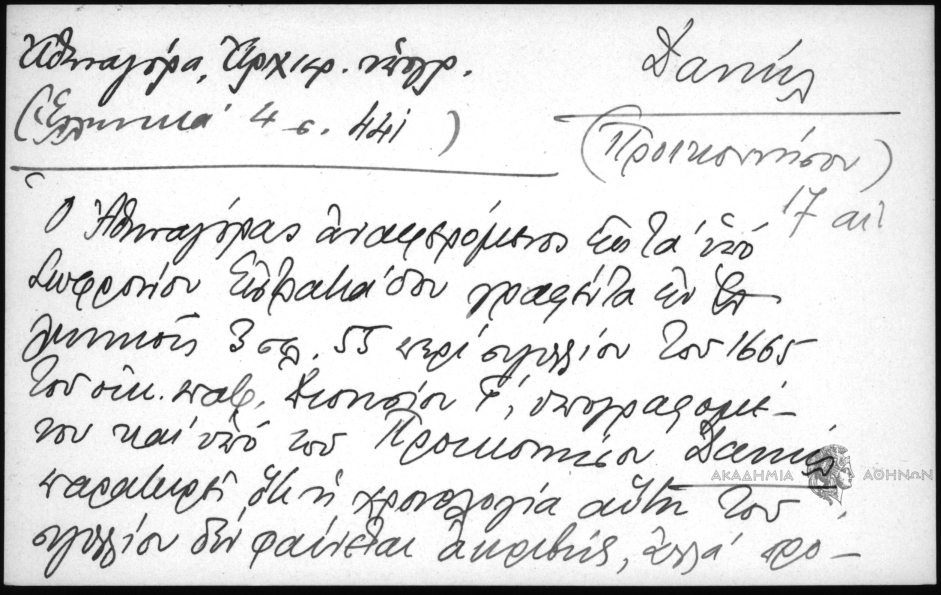 Ἀθηναγόρα, Ἀρχιερ. ὑπογρ.
(Ἑλληνικά 4 σ. 441)
Δανιήλ
(Προικοννήσου)
17 αἰ
Ὁ Ἀθηναγόρας ἀναφερόμενος εἰς τά ὑπό
Σωφρονίου Εὐστρατιάδου γραφέντα ἐν Ἑλ
ληνικοῖς 3 σελ. 55 περί σιγιλλίου τοῦ 1665
τοῦ οἰκ. πατρ. Διονυσίου Γ', ὑπογραφομέ-
νου καί ὑπό τοῦ Προικοννήσου Δανιήλ
παρατηρεῖ ὅτι ἡ χρονολογία αὕτη τοῦ
σιγιλλίου δέν φαίνεται ἀκριβής, ἀλλά προ-
ΑΚΑΔΗΜΙΑ ΑΘΗΝΩΝ